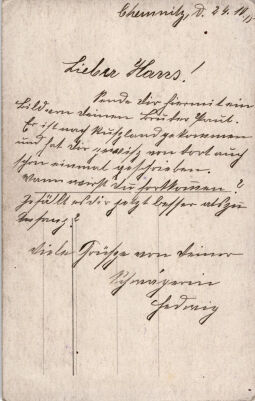 Chemnitz, d. 24.10.15
Lieber Hans!
Sende dir hiermit ein
Bild von deinem Bruder Paul.
Er ist nach Rußland gekommen
und hat dir gewiß von dort auch
schon einmal geschrieben.
Wann wirst du fortkommen?
Gefällt es dir jetzt besser als zu
Anfang?
Viele Grüße von deiner
Schwägerin
Hedwig